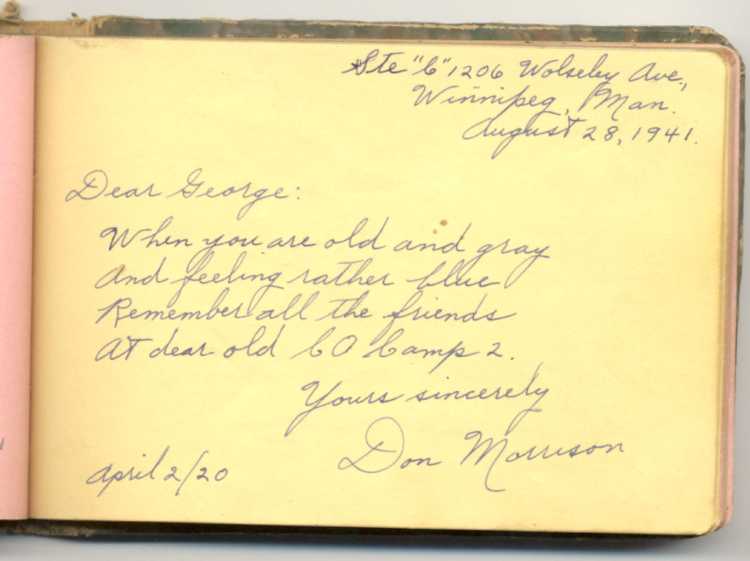 Ste "C" 1206 Wolseley Ave.,
Winnipeg, Man.
August 28, 1941.
Dear George:
When you are old and gray
And feeling rather blue
Remember all the friends
At dear old CO Camp 2.
Yours sincerely
Don Morrison
April 2/20